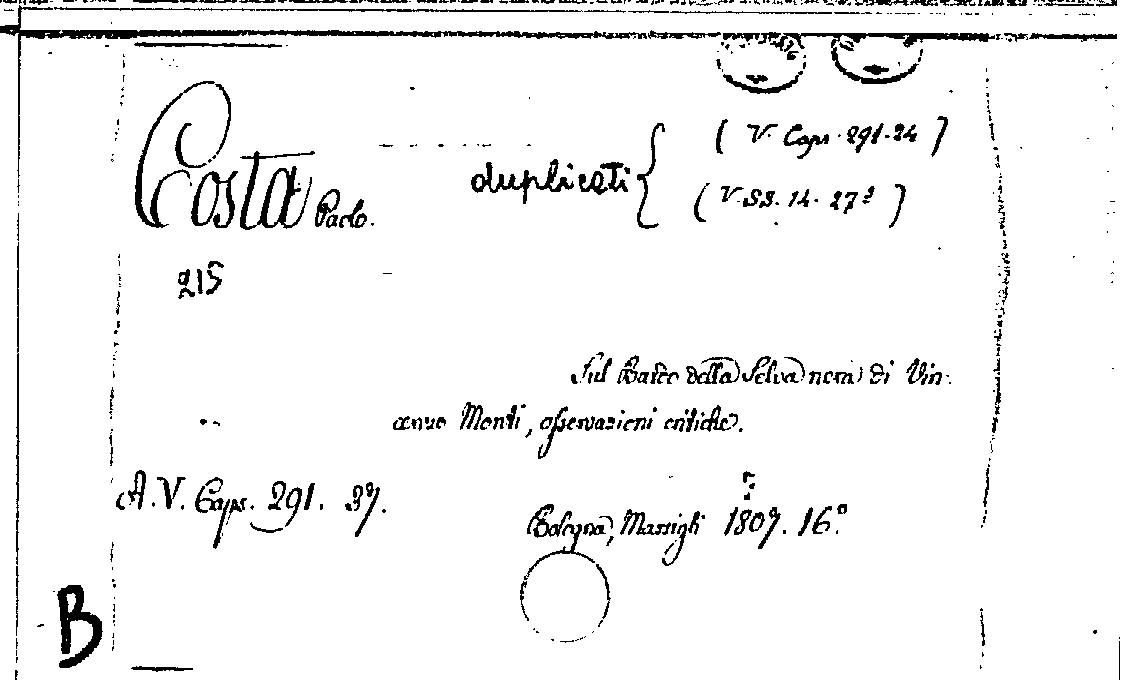 Costa Paolo.
duplicati { ( V. Caps. 291. 24 )
( V. SS. 14. 27² )
215
Sul Bardo della Selva nera di Vin-
cenzo Monti, osservazioni critiche.
A. V. Caps. 291. 37.
?
Bologna, Marsigli 1807. 16.°
B